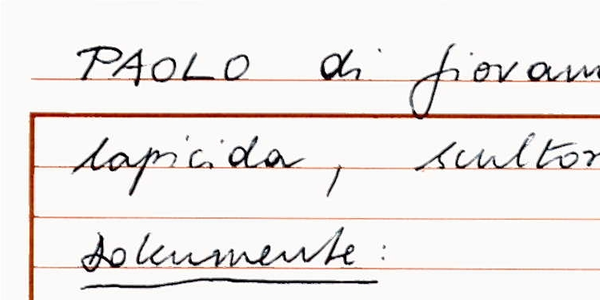 PAOLO di giovann
lapicida, scultor
Dokumente: